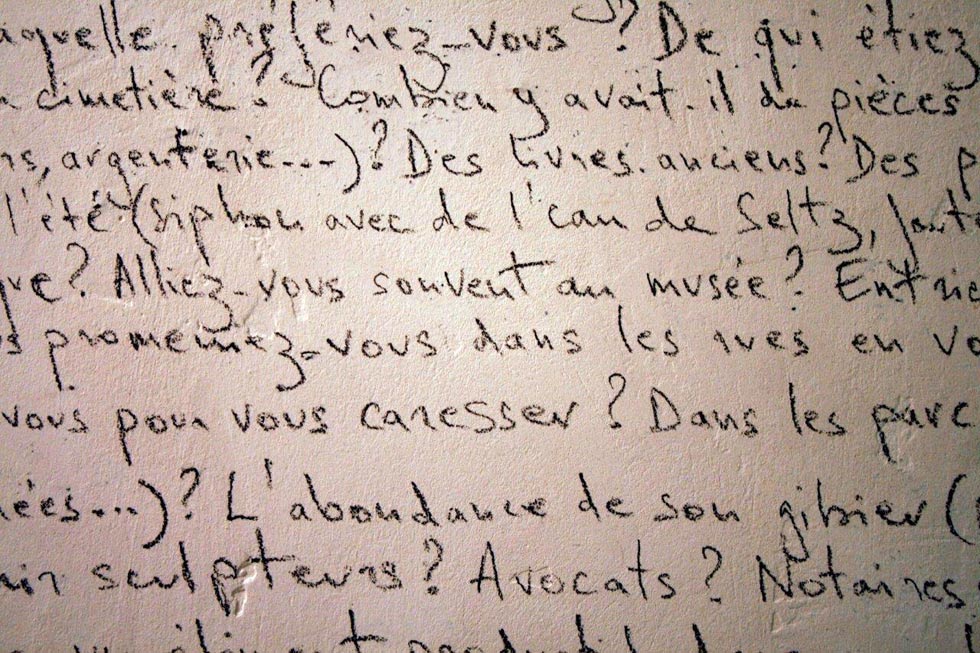 aquelle préfériez-vous ? De qui étiez
cimetière ? Combien y avait-il de pièces
ns, argenterie...)? Des livres anciens? Des p
l'été (siphon avec de l'eau de Seltz,
que? Alliez-vous souvent au musée? Entrie
s promeniez-vous dans les rues en vo
vous pour vous caresser ? Dans les parc
ées...)? L'abondance de son gibier (
sculpteurs? Avocats? Notaires